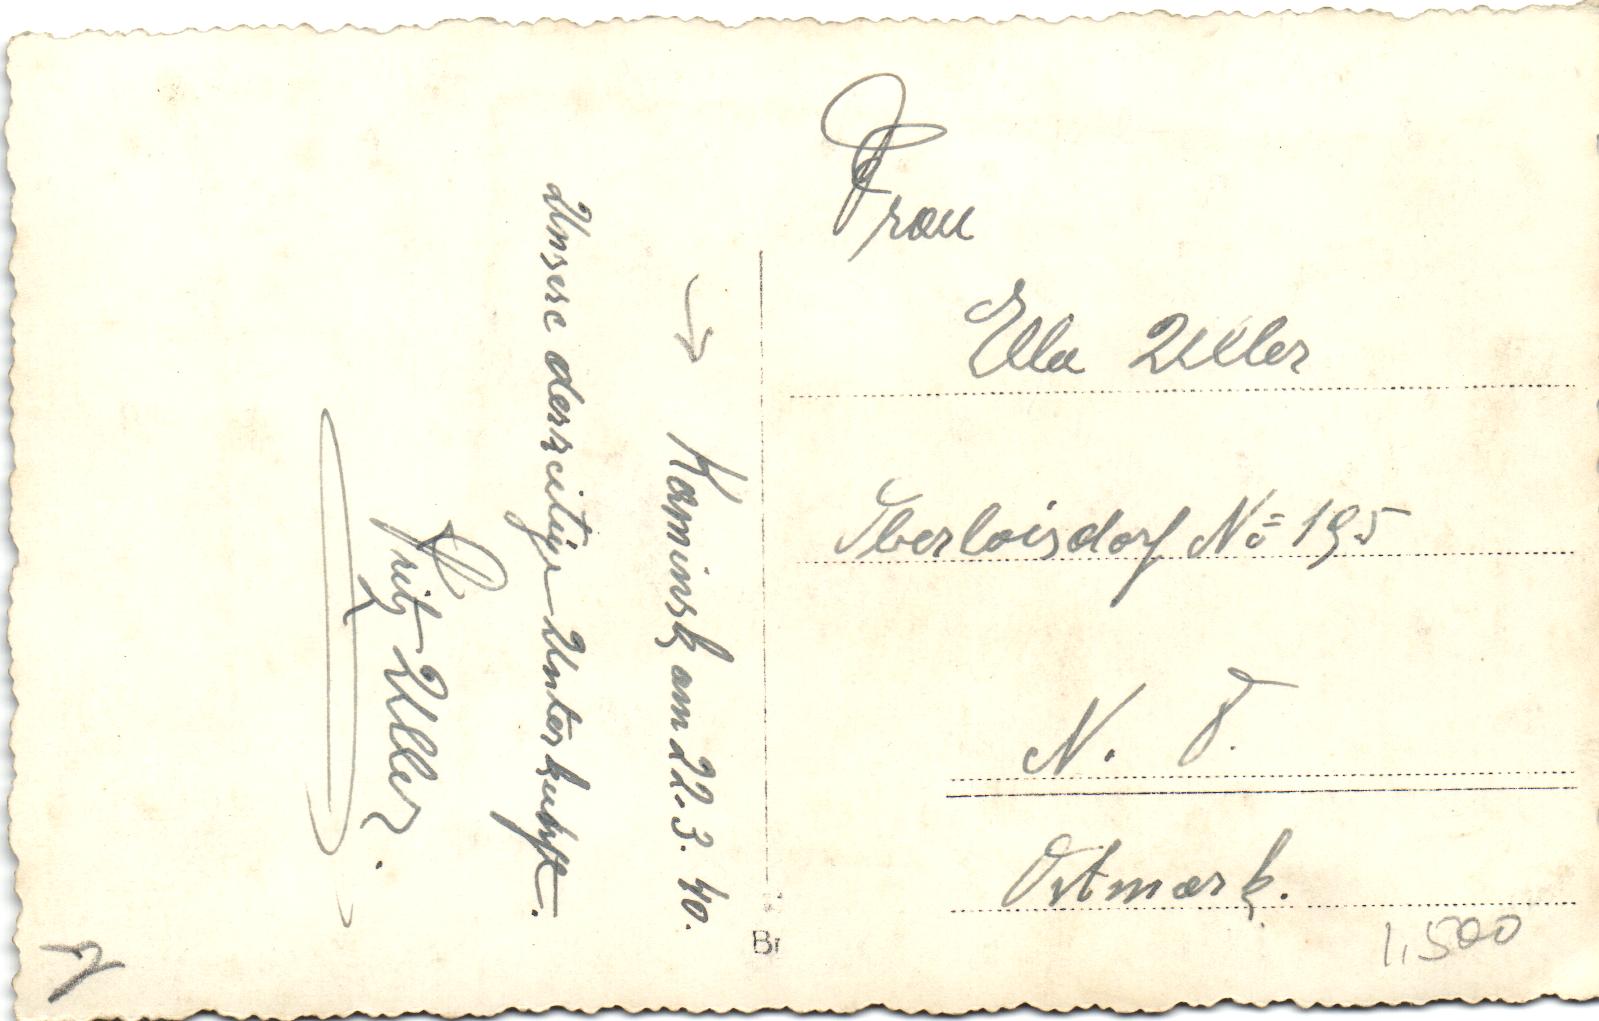 Kaminsk am 22.3.40.
Unsere derzeitige Unterkunft.
Fritz Uller.
Frau
Ella Uller
Oberloisdorf No 195
N. D.
Ostmark.
Br
1,500